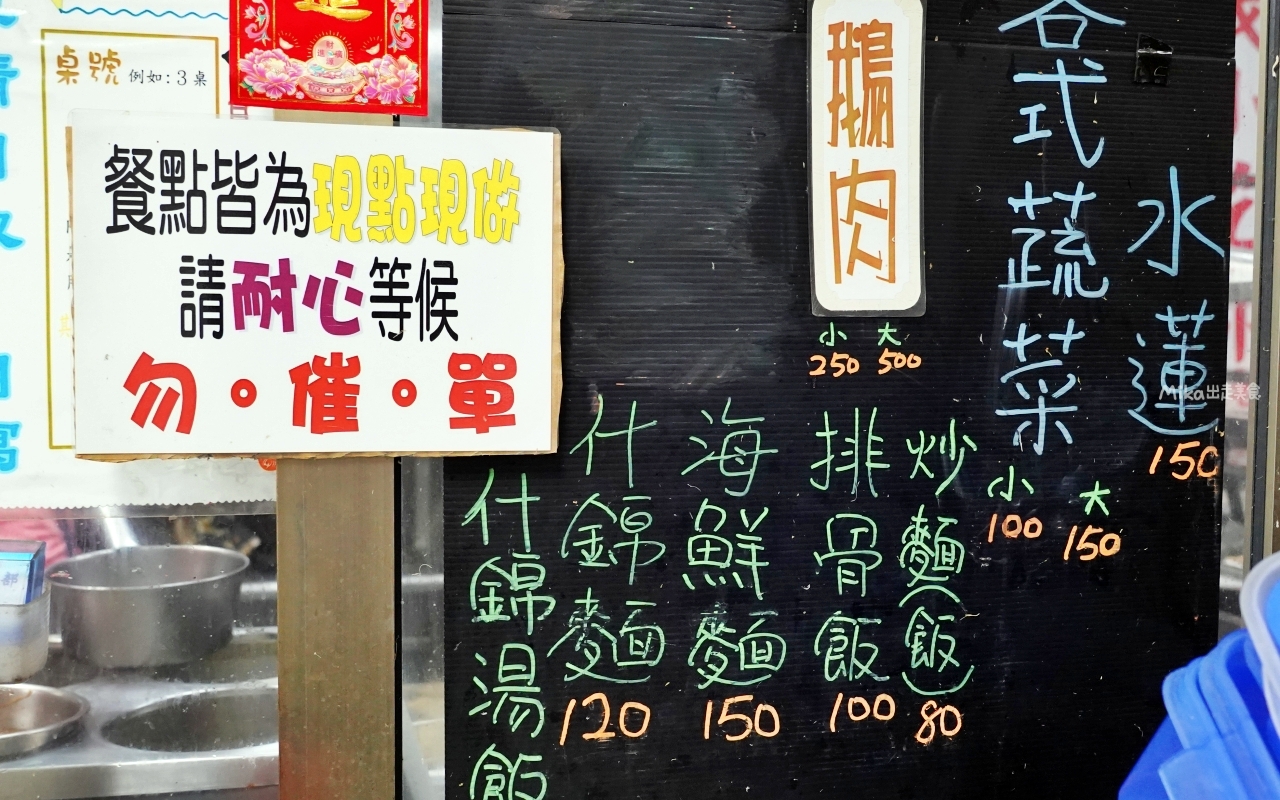 桌號 例如:3桌
餐點皆為現點現做
請耐心等候
勿。催。單
鵝肉
小 大
250 500
各式蔬菜
小 大
100 150
水蓮
150
炒麵(飯)
80
排骨飯
100
海鮮麵
150
什錦麵
120
什錦湯飯
Mika出走美食